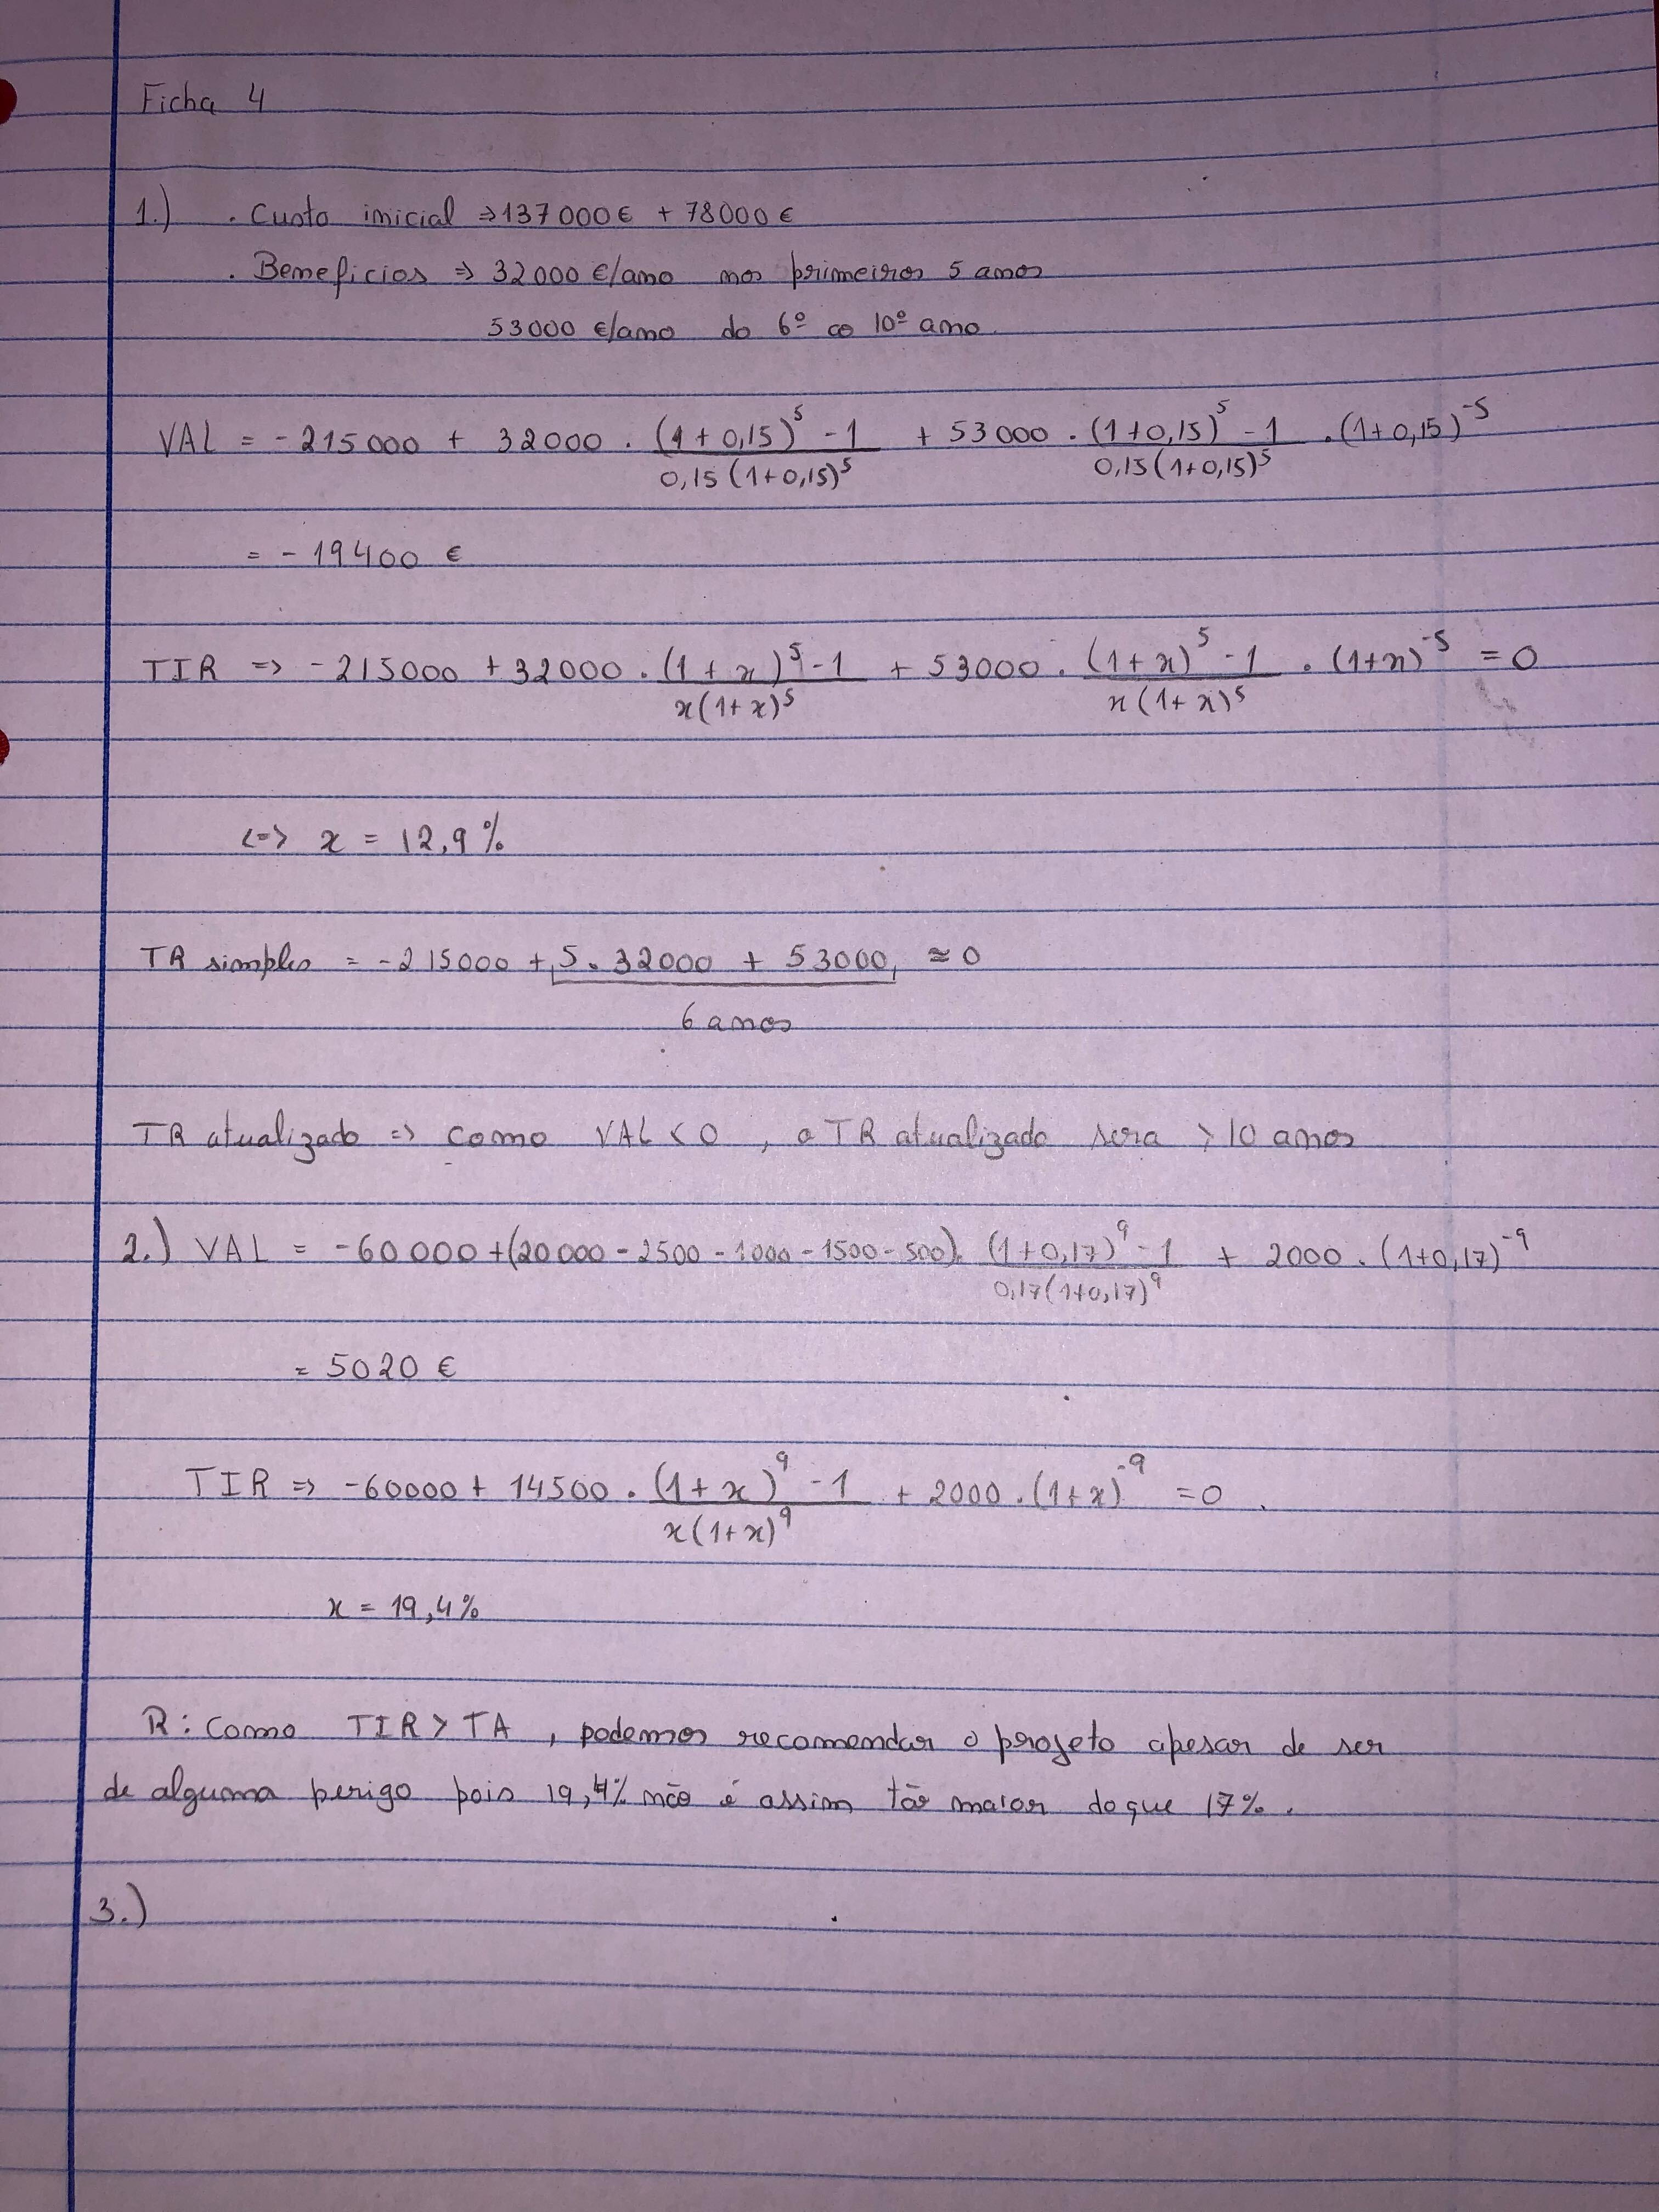 Ficha 4
1.) . Custo inicial ⇒ 137000€ + 78000€
. Beneficios ⇒ 32000 €/ano nos primeiros 5 anos
53000 €/ano do 6º ao 10º ano.
VAL = -215000 + 32000 . ((1+0,15)^5 - 1)/(0,15(1+0,15)^5) + 53000 . ((1+0,15)^5 - 1)/(0,15(1+0,15)^5) . (1+0,15)^-5
= - 19400 €
TIR ⇒ -215000 + 32000 . ((1+x)^5 - 1)/(x(1+x)^5) + 53000 . ((1+x)^5 - 1)/(x(1+x)^5) . (1+x)^-5 = 0
<=> x = 12,9%
TR simples = -215000 + 5. 32000 + 53000 ≈ 0
6 anos
TR atualizado ⇒ como VAL < 0 , o TR atualizado sera > 10 anos
2.) VAL = -60 000 + (20 000 - 2500 - 1000 - 1500 - 500). ((1+0,17)^9 - 1)/(0,17(1+0,17)^9) + 2000 . (1+0,17)^-9
= 5020 €
TIR ⇒ -60000 + 14500 . ((1+x)^9 - 1)/(x(1+x)^9) + 2000 . (1+x)^-9 = 0 .
x = 19,4%
R: Como TIR > TA , podemos recomendar o projeto apesar de ser
de alguma perigo pois 19,4% não é assim tão maior do que 17% .
3.)